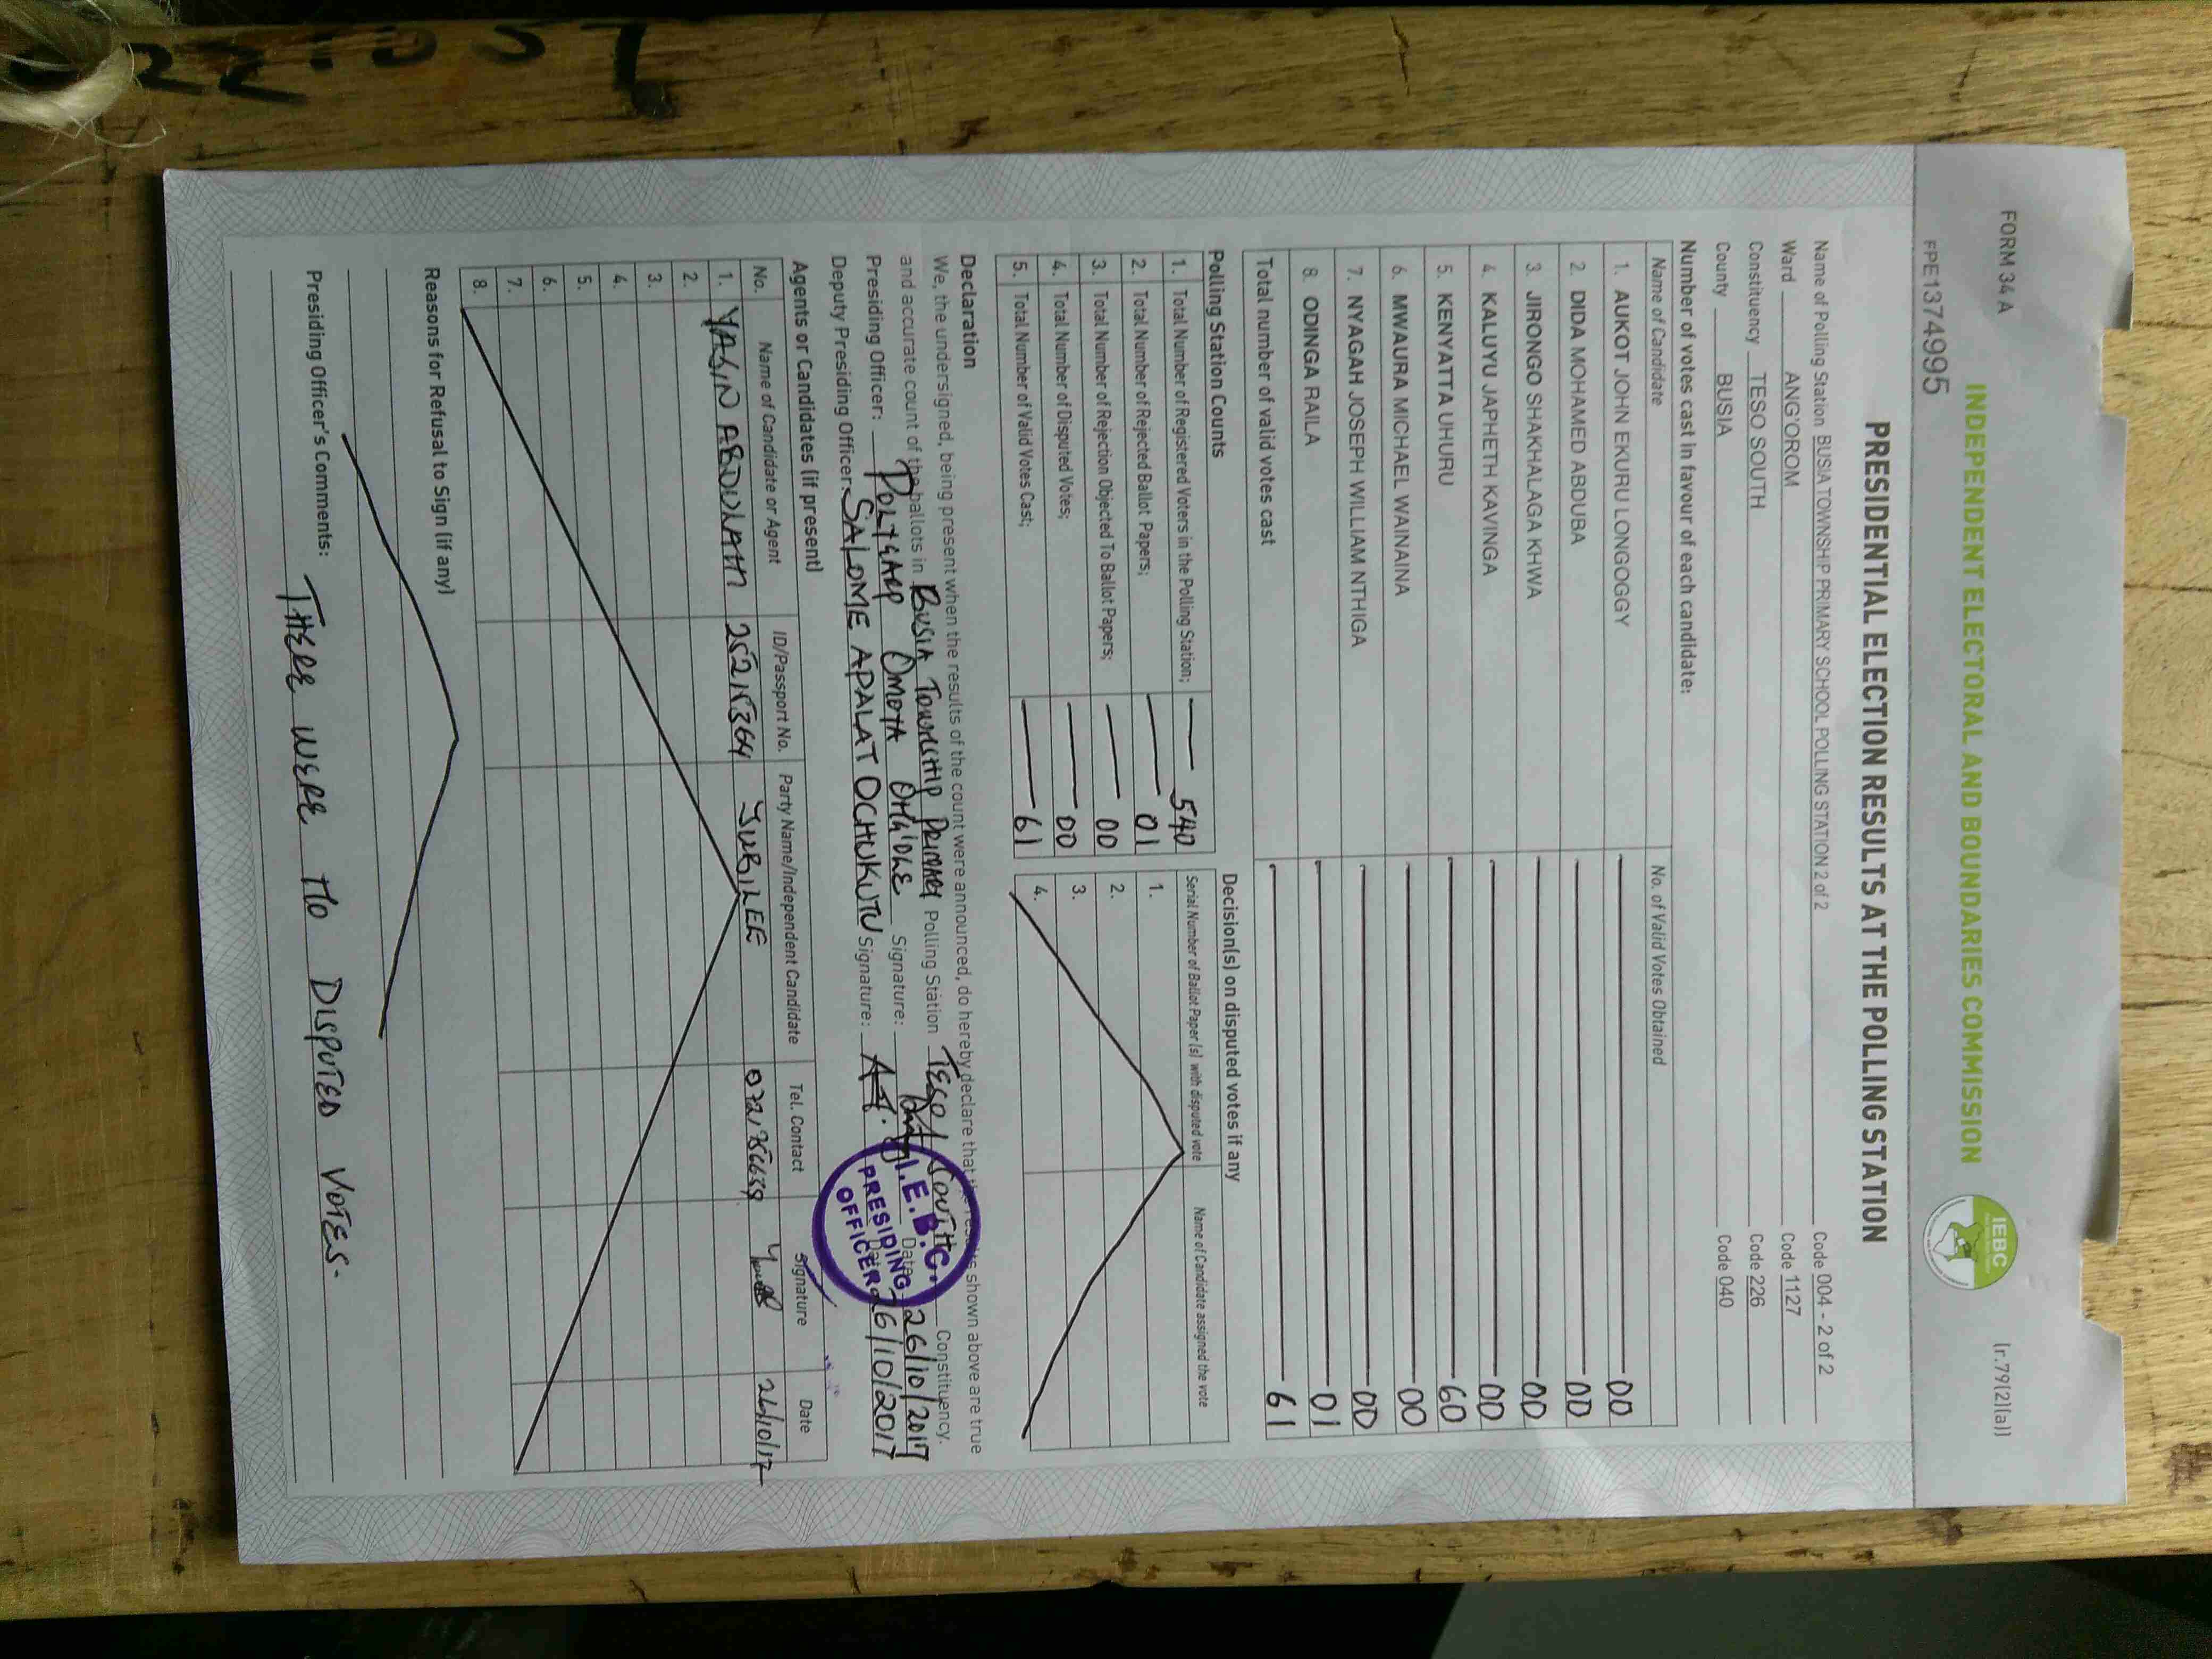 FORM 34 A
(r.79(2)(a))
INDEPENDENT ELECTORAL AND BOUNDARIES COMMISSION
IEBC
FPE1374995
PRESIDENTIAL ELECTION RESULTS AT THE POLLING STATION
Name of Polling Station BUSIA TOWNSHIP PRIMARY SCHOOL POLLING STATION 2 of 2 Code 004 - 2 of 2
Ward ANG'OROM Code 1127
Constituency TESO SOUTH Code 226
County BUSIA Code 040
Number of votes cast in favour of each candidate:
Name of Candidate No. of Valid Votes Obtained
1. AUKOT JOHN EKURU LONGOGGY 00
2. DIDA MOHAMED ABDUBA 00
3. JIRONGO SHAKHALAGA KHWA 00
4. KALUYU JAPHETH KAVINGA 00
5. KENYATTA UHURU 60
6. MWAURA MICHAEL WAINAINA 00
7. NYAGAH JOSEPH WILLIAM NTHIGA 00
8. ODINGA RAILA 01
Total number of valid votes cast 61
Polling Station Counts
1. Total Number of Registered Voters in the Polling Station; 540
2. Total Number of Rejected Ballot Papers; 01
3. Total Number of Rejection Objected To Ballot Papers; 00
4. Total Number of Disputed Votes; 00
5. Total Number of Valid Votes Cast; 61
Decision(s) on disputed votes if any
Serial Number of Ballot Paper (s) with disputed vote Name of Candidate assigned the vote
1.
2.
3.
4.
Declaration
We, the undersigned, being present when the results of the count were announced, do hereby declare that the results shown above are true
and accurate count of the ballots in BUSIA TOWNSHIP PRIMARY Polling Station TESO SOUTH Constituency.
Presiding Officer: POLYCARP OMOTA Signature: Date 26/10/2017
Deputy Presiding Officer SALOME APALAT OCHUKUTU Signature: 26/10/2017
I.E.B.C.
PRESIDING
OFFICER
Agents or Candidates (if present)
No. Name of Candidate or Agent ID/Passport No. Party Name/Independent Candidate Tel. Contact Signature Date
1. YASIN ABDULAHI JUBILEE 26/10/17
2.
3.
4.
5.
6.
7.
8.
Reasons for Refusal to Sign (if any)
Presiding Officer's Comments: THERE WERE NO DISPUTED VOTES.